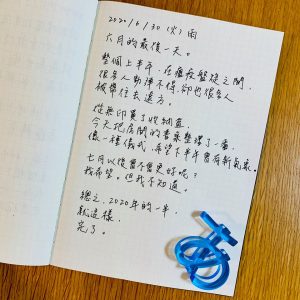 2020/6/30 (火) 雨
六月的最後一天。
整個上半年,在瘟疫盤旋之間,
很多人動彈不得,卻也很多人
被帶往去遠方。
從無印買了收納盒,
今天把房間的書桌整理了一番,
像一種儀式,希望下半年會有新氣象。
七月以後會不會更好呢?
我希望。但我不知道。
總之,2020年的一半,
就這樣,
完了。